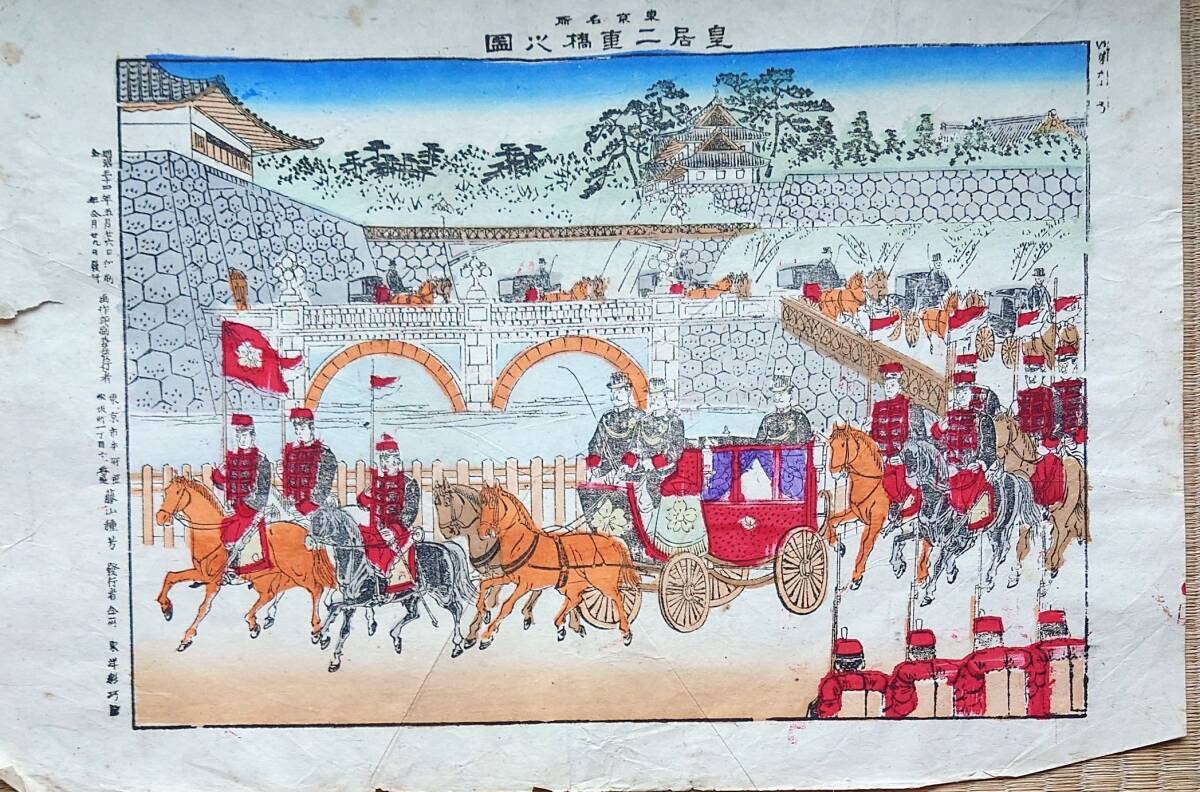 東京名所
皇居二重橋之圖
明治三十四年五月廿六日印刷
仝 年仝月廿九日發行
画作印刷兼發行者
東京市本所区
松坂町一丁目六番地
藤山種芳
發行者仝所 東洋彩巧舘